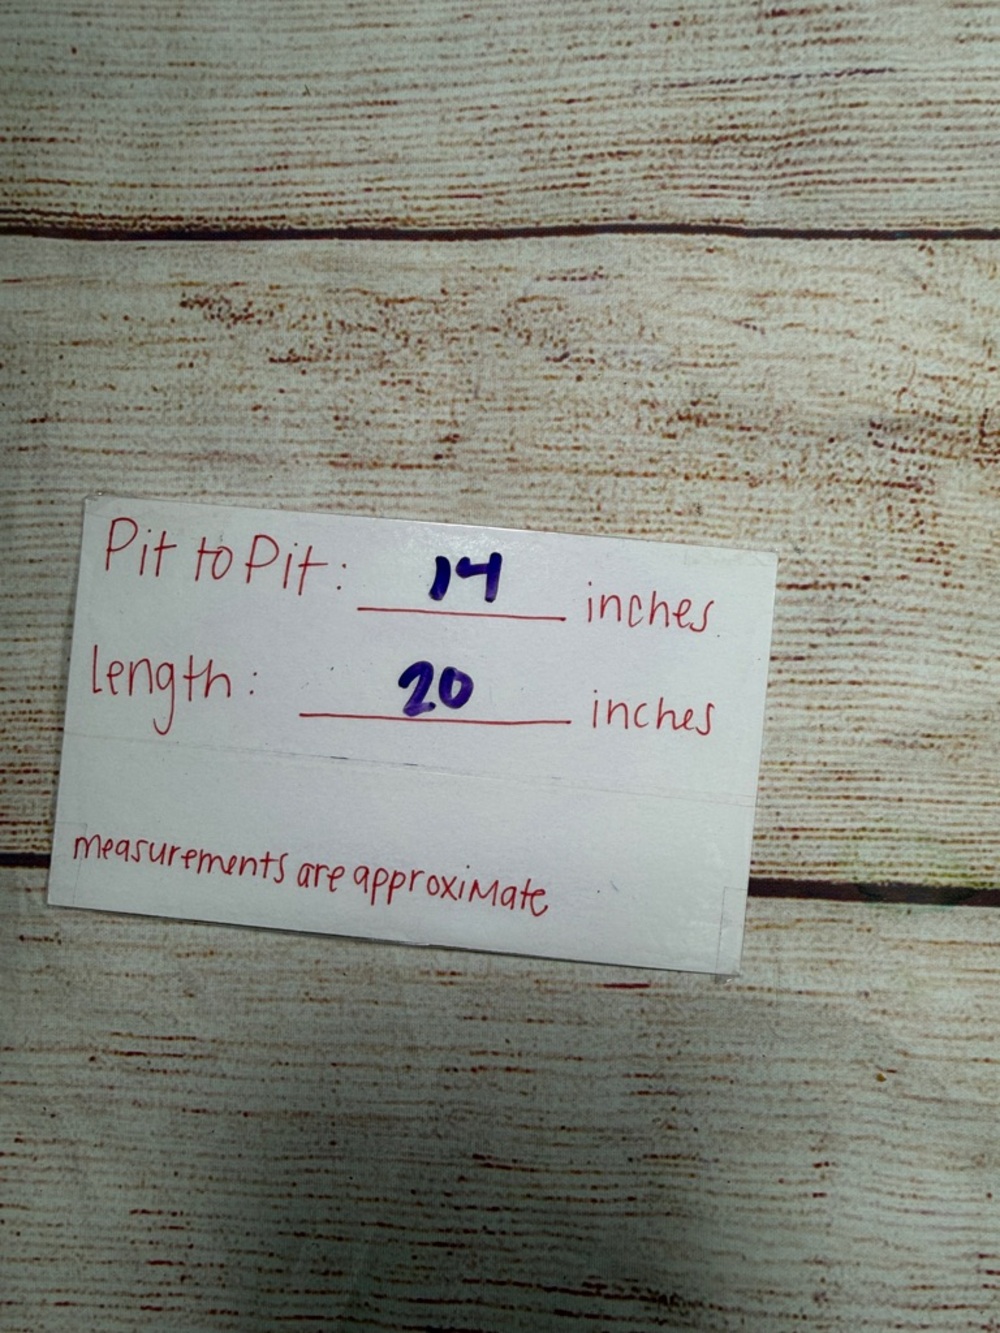 Pit to Pit: 14 inches.
Length: 20 inches
measurements are approximate